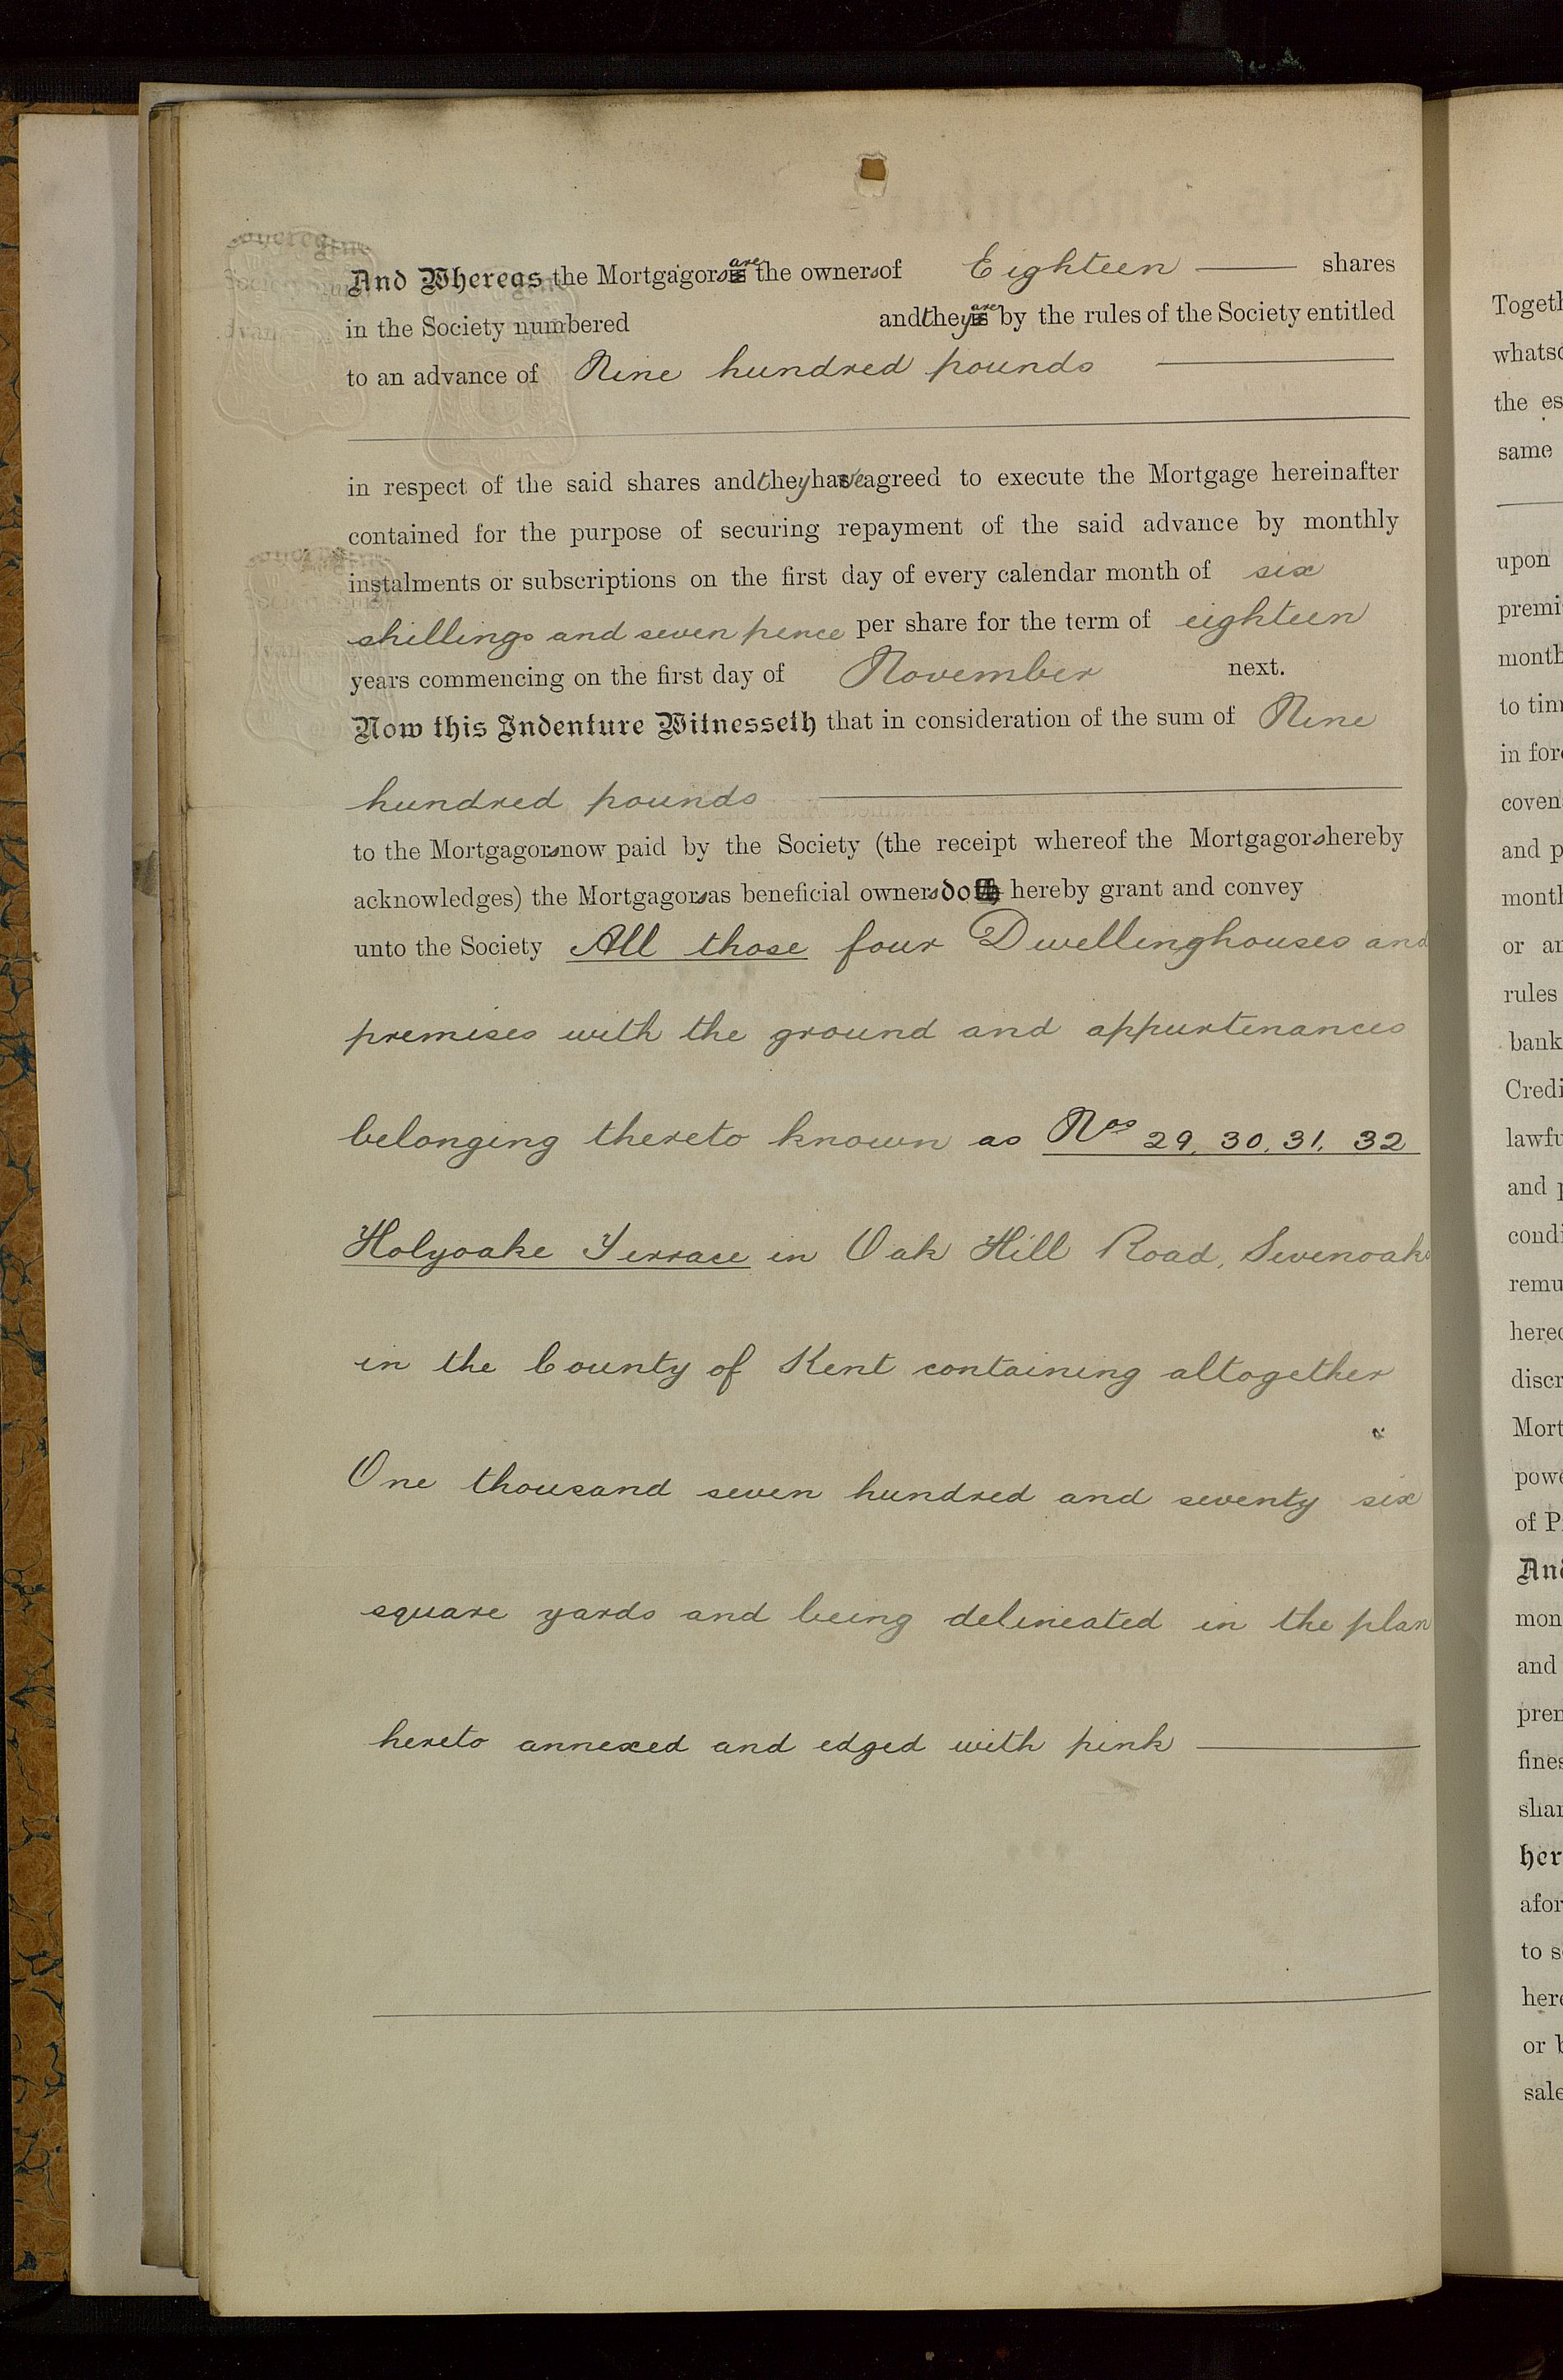 And Whereas the Mortgagors are the owners of Eighteen shares
in the Society numbered and they are by the rules of the Society entitled
to an advance of Nine hundred pounds
in respect of the said shares and they have agreed to execute the Mortgage hereinafter
contained for the purpose of securing repayment of the said advance by monthly
instalments or subscriptions on the first day of every calendar month of six
shillings and seven pence per share for the term of eighteen
years commencing on the first day of November next.
Now this Indenture Witnesseth that in consideration of the sum of Nine
hundred pounds
to the Mortgagors now paid by the Society (the receipt whereof the Mortgagors hereby
acknowledges) the Mortgagors as beneficial owners do hereby grant and convey
unto the Society All those four Dwellinghouses and
premises with the ground and appurtenances
belonging thereto known as Nos 29, 30, 31, 32
Holyoake Terrace in Oak Hill Road, Sevenoaks
in the County of Kent containing altogether
One thousand seven hundred and seventy six
square yards and being delineated in the plan
hereto annexed and edged with pink
Togeth
whatso
the es
same
upon
premi
month
to tim
in for
coven
and p
month
or an
rules
bank
Credi
lawfu
and p
condi
remu
hered
discr
Mort
powe
of P
And
mon
and
prem
fines
shar
her
afor
to s
here
or b
sale